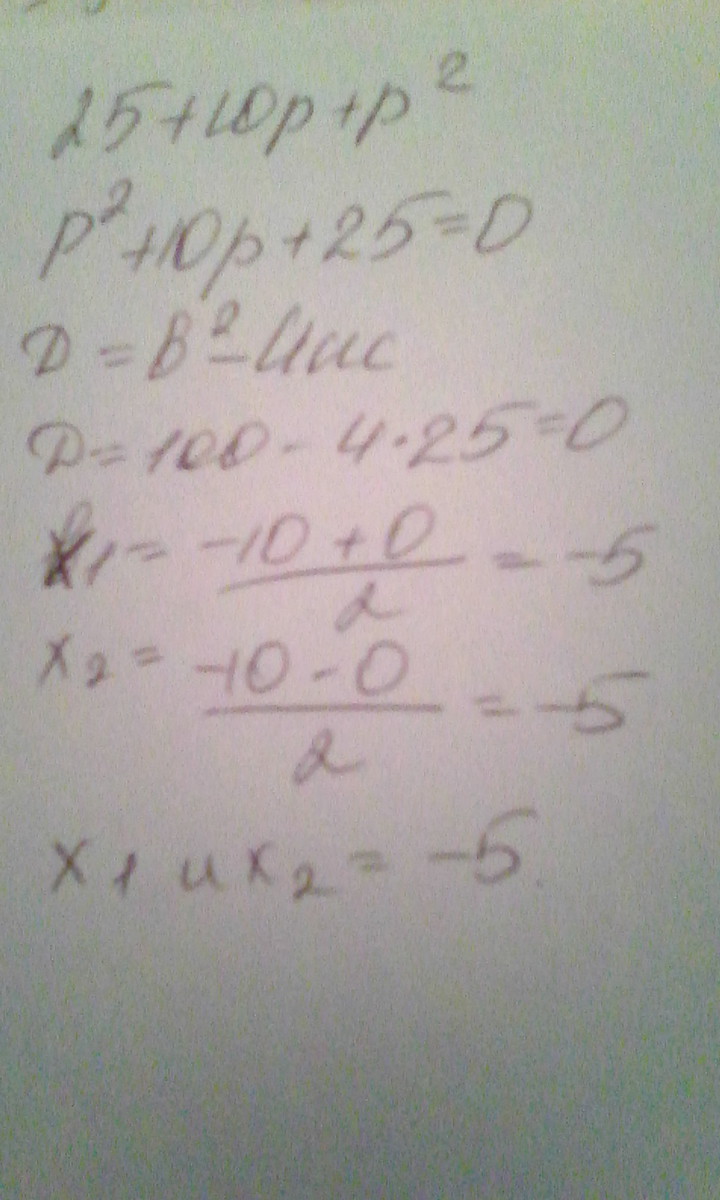 25+10p+p²
p²+10p+25=0
D=B²-4ac
D=100-4·25=0
x₁= (-10+0)/2 = -5
x₂= (-10-0)/2 = -5
x₁ и x₂ = -5